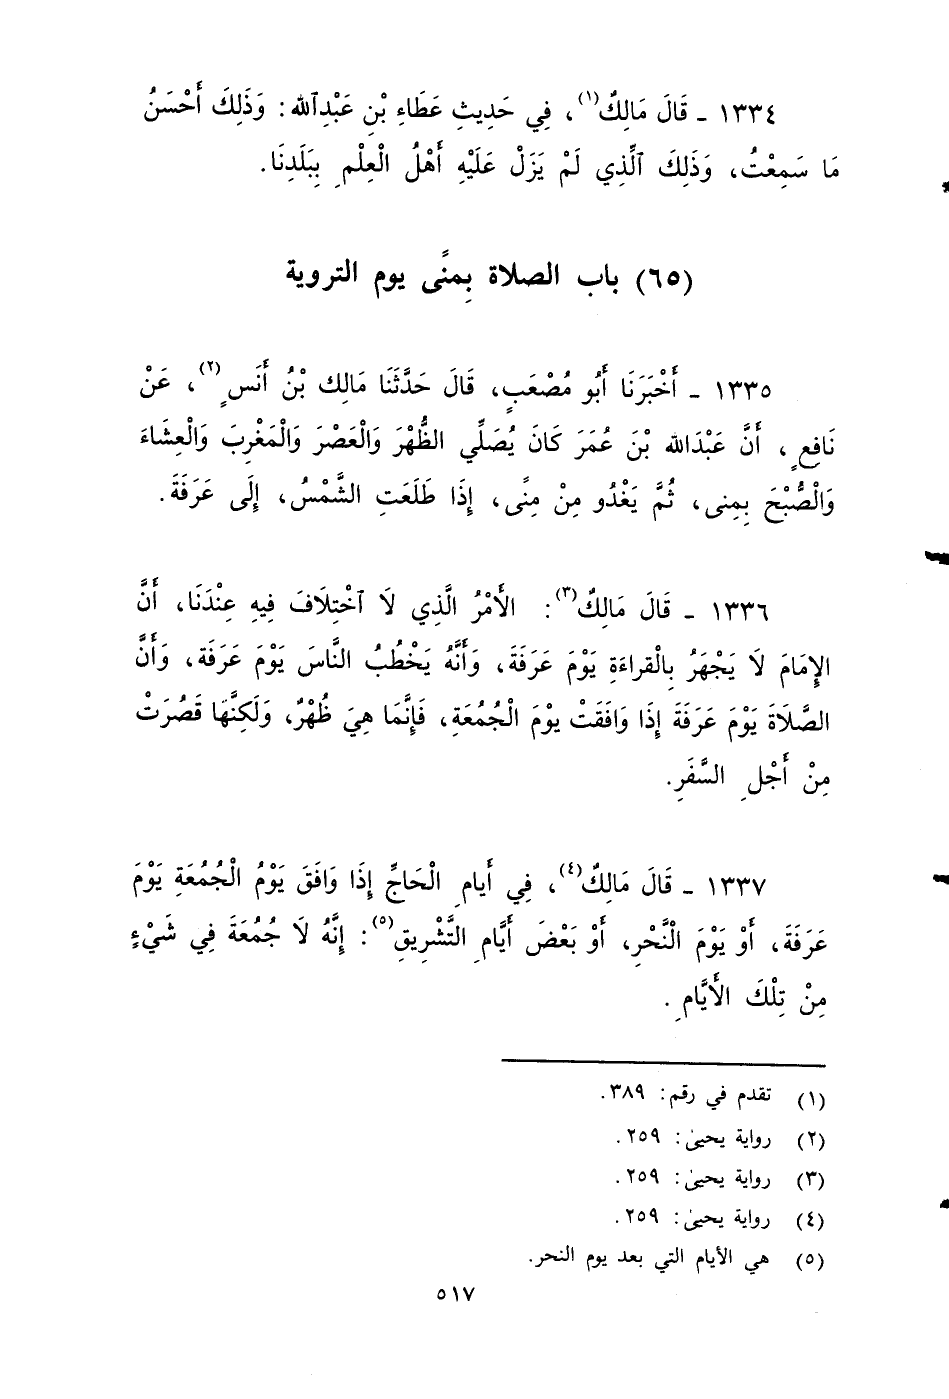 ١٣٣٤ - قَالَ مَالِكٌ(١)، فِي حَدِيثِ عَطَاءِ بْنِ عَبْدِٱلله: وَذَلِكَ أَحْسَنُ
مَا سَمِعْتُ، وَذَلِكَ ٱلَّذِي لَمْ يَزَلْ عَلَيْهِ أَهْلُ الْعِلْمِ بِبَلَدِنَا.
(٦٥) باب الصلاة بِمنًى يوم التروية
١٣٣٥ - أَخْبَرَنَا أَبُو مُصْعَبٍ، قَالَ حَدَّثَنَا مَالِك بْنُ أَنَسٍ(٢)، عَنْ
نَافِعٍ، أَنَّ عَبْدَالله بْنَ عُمَرَ كَانَ يُصَلِّي الظُّهْرَ وَالْعَصْرَ وَالْمَغْرِبَ وَالْعِشَاءَ
وَالْصُّبْحَ بِمِنى، ثُمَّ يَغْدُو مِنْ مِنًى، إِذَا طَلَعَتِ الشَّمْسُ، إِلَى عَرَفَةَ.
١٣٣٦ - قَالَ مَالِكٌ(٣): الأَمْرُ الَّذِي لَا ٱخْتِلَافَ فِيهِ عِنْدَنَا، أَنَّ
الإِمَامَ لَا يَجْهَرُ بِالْقراءَةِ يَوْمَ عَرَفَةَ، وَأَنَّهُ يَخْطُبُ النَّاسَ يَوْمَ عَرَفَة، وَأَنَّ
الصَّلَاةَ يَوْمَ عَرَفَةَ إِذَا وَافَقَتْ يوْمَ الْجُمُعَةِ، فَإِنَّمَا هِيَ ظُهْرٌ، وَلَكِنَّهَا قَصُرَتْ
مِنْ أَجْلِ السَّفَرِ.
١٣٣٧ - قَالَ مَالِكٌ(٤)، فِي أَيامِ الْحَاجِّ إِذَا وَافَقَ يَوْمُ الْجُمُعَةِ يَوْمَ
عَرَفَةَ، أَوْ يَوْمَ الْنَّحْرِ، أَوْ بَعْضَ أَيَّامِ التَّشْرِيقِ(٥): إِنَّهُ لَا جُمُعَةَ فِي شَيْءٍ
مِنْ تِلْكَ الأَيَّامِ.
(١) تقدم في رقم: ٣٨٩.
(٢) رواية يحيىٰ: ٢٥٩.
(٣) رواية يحيىٰ: ٢٥٩.
(٤) رواية يحيىٰ: ٢٥٩.
(٥) هي الأيام التي بعد يوم النحر.
٥١٧